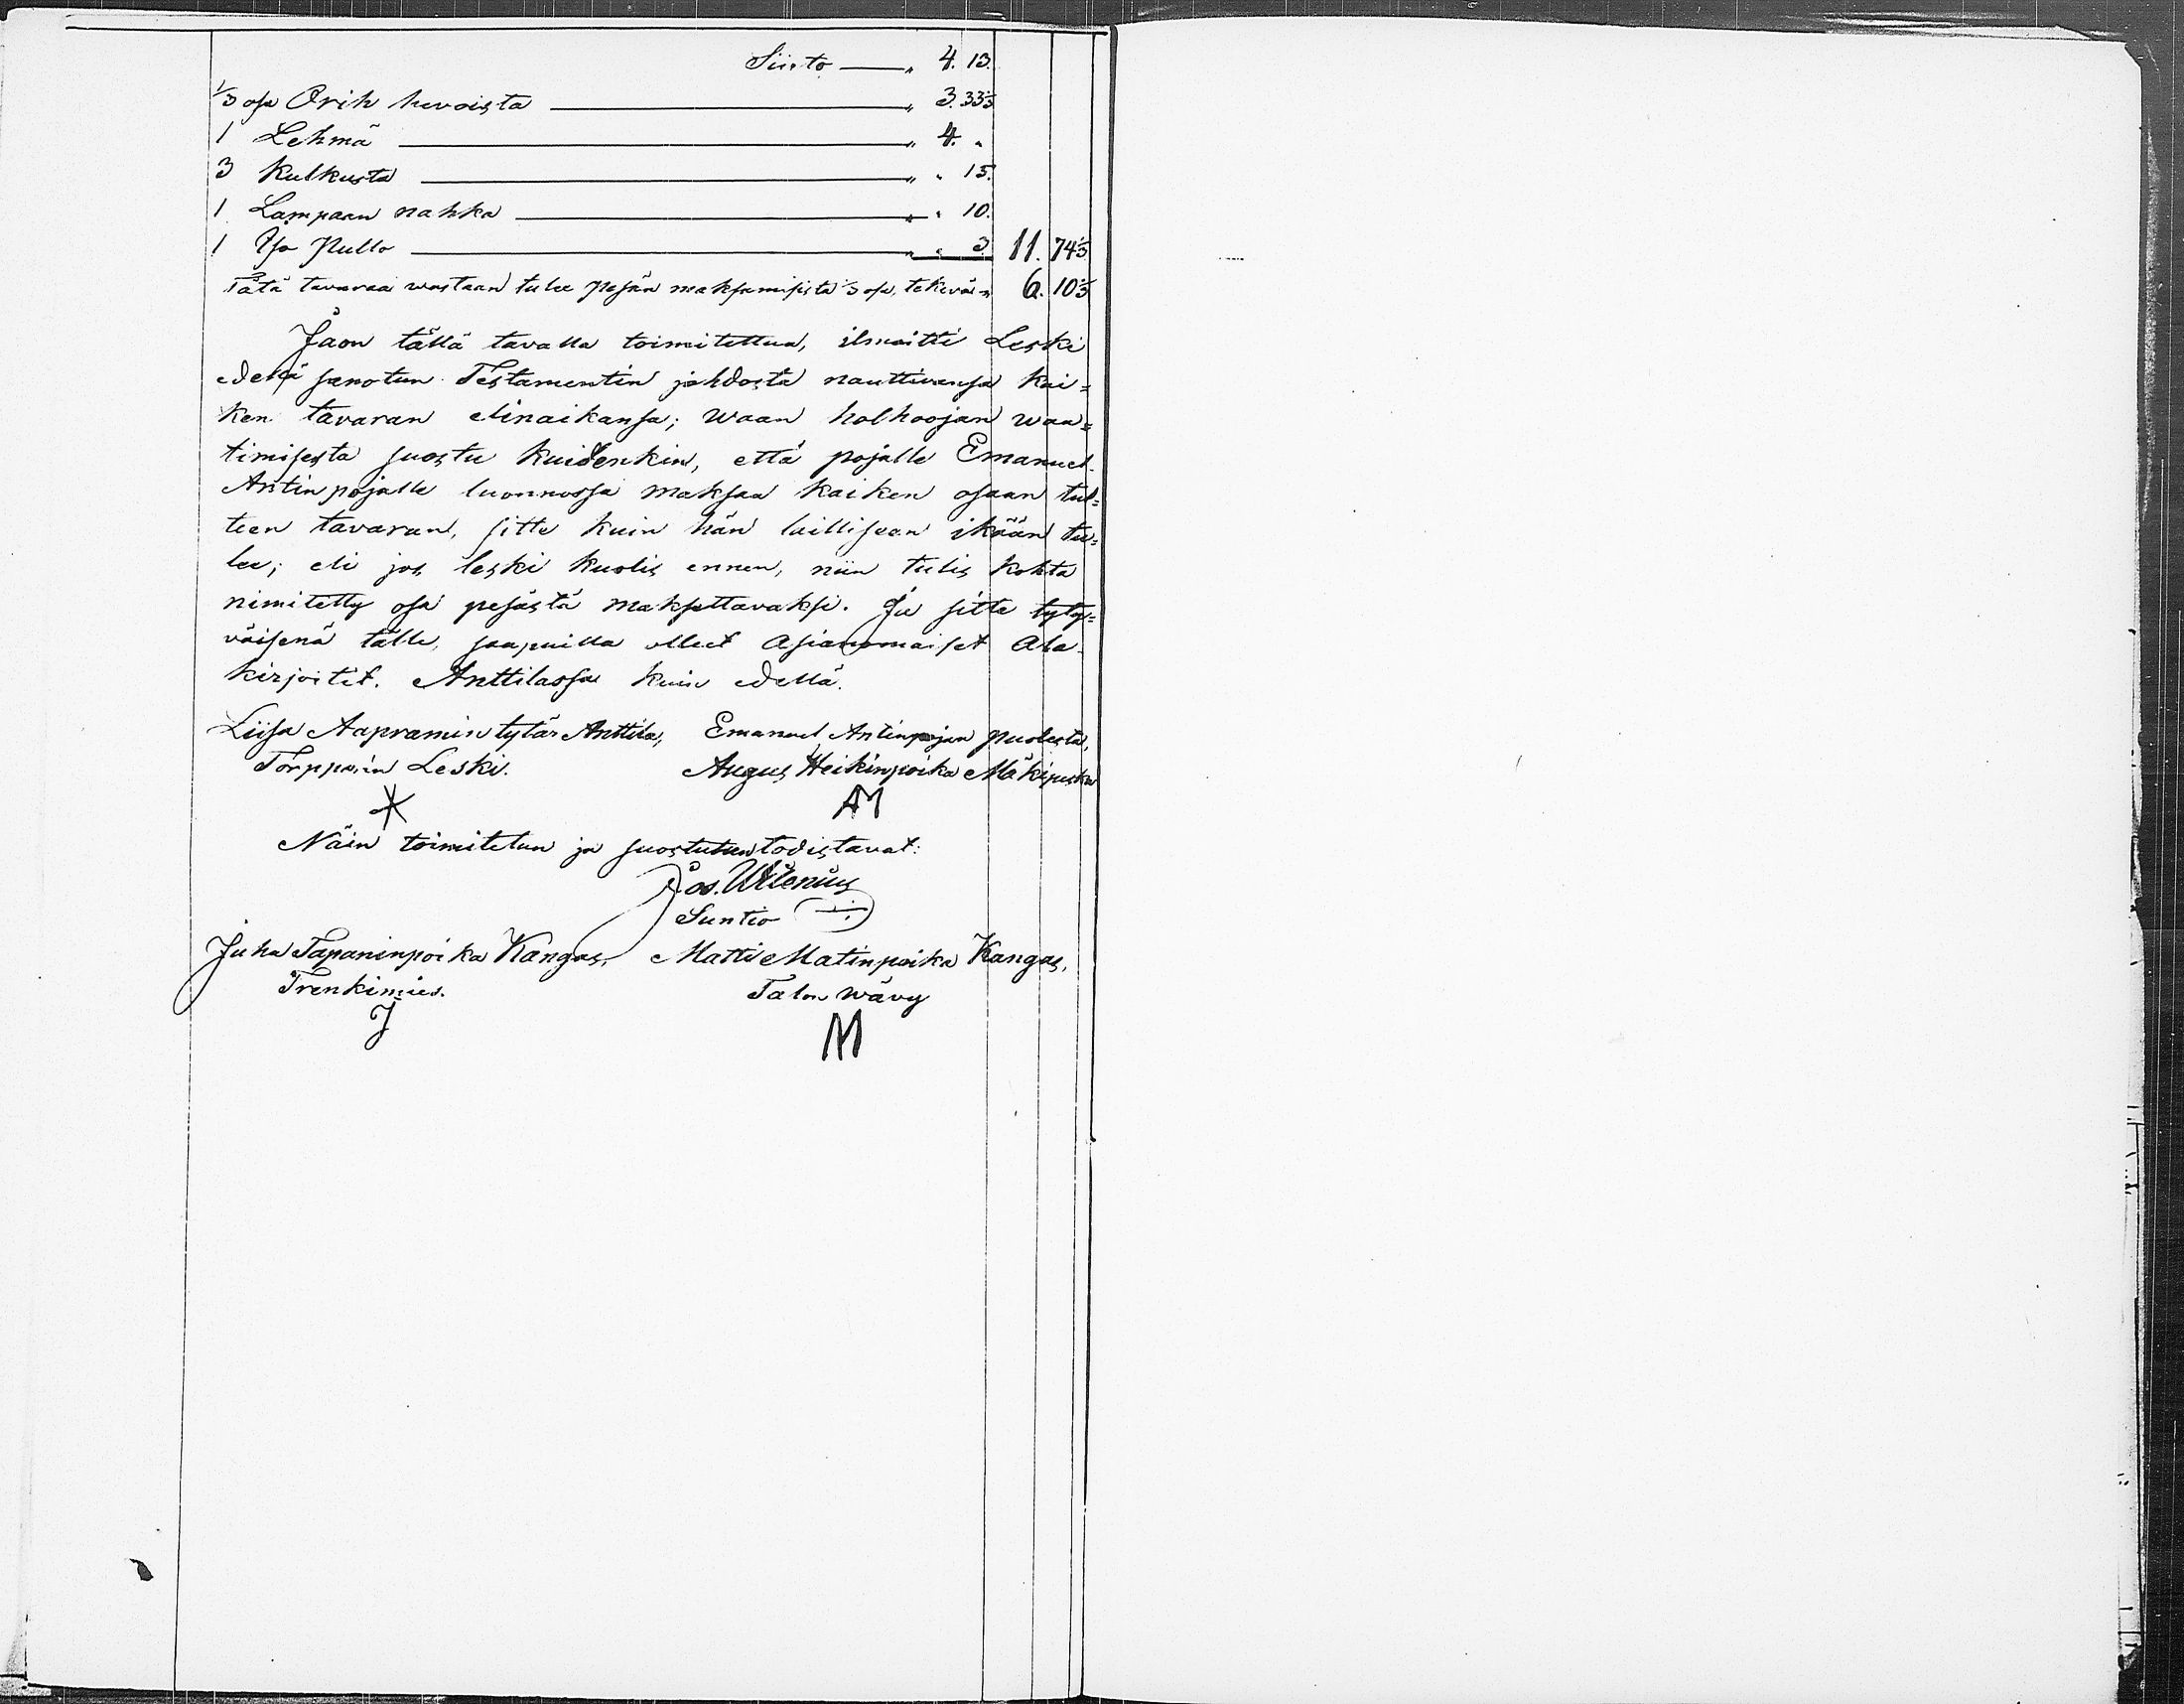 Siirto — „ 4. 13.
1/3 osa Orih hevoista — „ 3. 33 1/3
1 Lehmä — „ 4. „
3 Kulkusta — „ „ 15.
1 Lampaan nahka — „ „ 10.
1 Iso Pullo — „ „ 3. 11. 74 1/3
Tätä tavaraa wastaan tulee pesän maksamisista 1/3 osa, tekevä „ 6. 10 1/3
Jaon tällä tavalla toimitettua, ilmoitti Leski
edellä sanotun Testamentin johdosta nauttivansa kai=
ken tavaran elinaikansa; waan holhoojan waa=
timisesta suostu kuidenkin, että pojalle Emanuel
Antinpojalle luonnossa maksaa kaiken osaan tul=
leen tavaran, sitte kuin hän lailliseen ikään tu=
lee; eli jos leski kuolis ennen, niin tulis kohta
nimitetty osa pesästä maksettavaksi. Ja sitte tyty=
väisenä tälle, saapuilla olleet Asianomaiset Ala
kirjoitit. Anttilassa kuin edellä.
Liisa Aapramin tytär Anttila, Emanuel Antinpojan puolesta,
Torpparin Leski. Augus Heikinpoika Mäkipuska
AM
Näin toimitetun ja suostutun todistavat:
Jos. Wilenius
Suntio
Juha Tapaninpoika Kangas, Matti Matinpoika Kangas,
Trenkimies. Talon wävy
J M